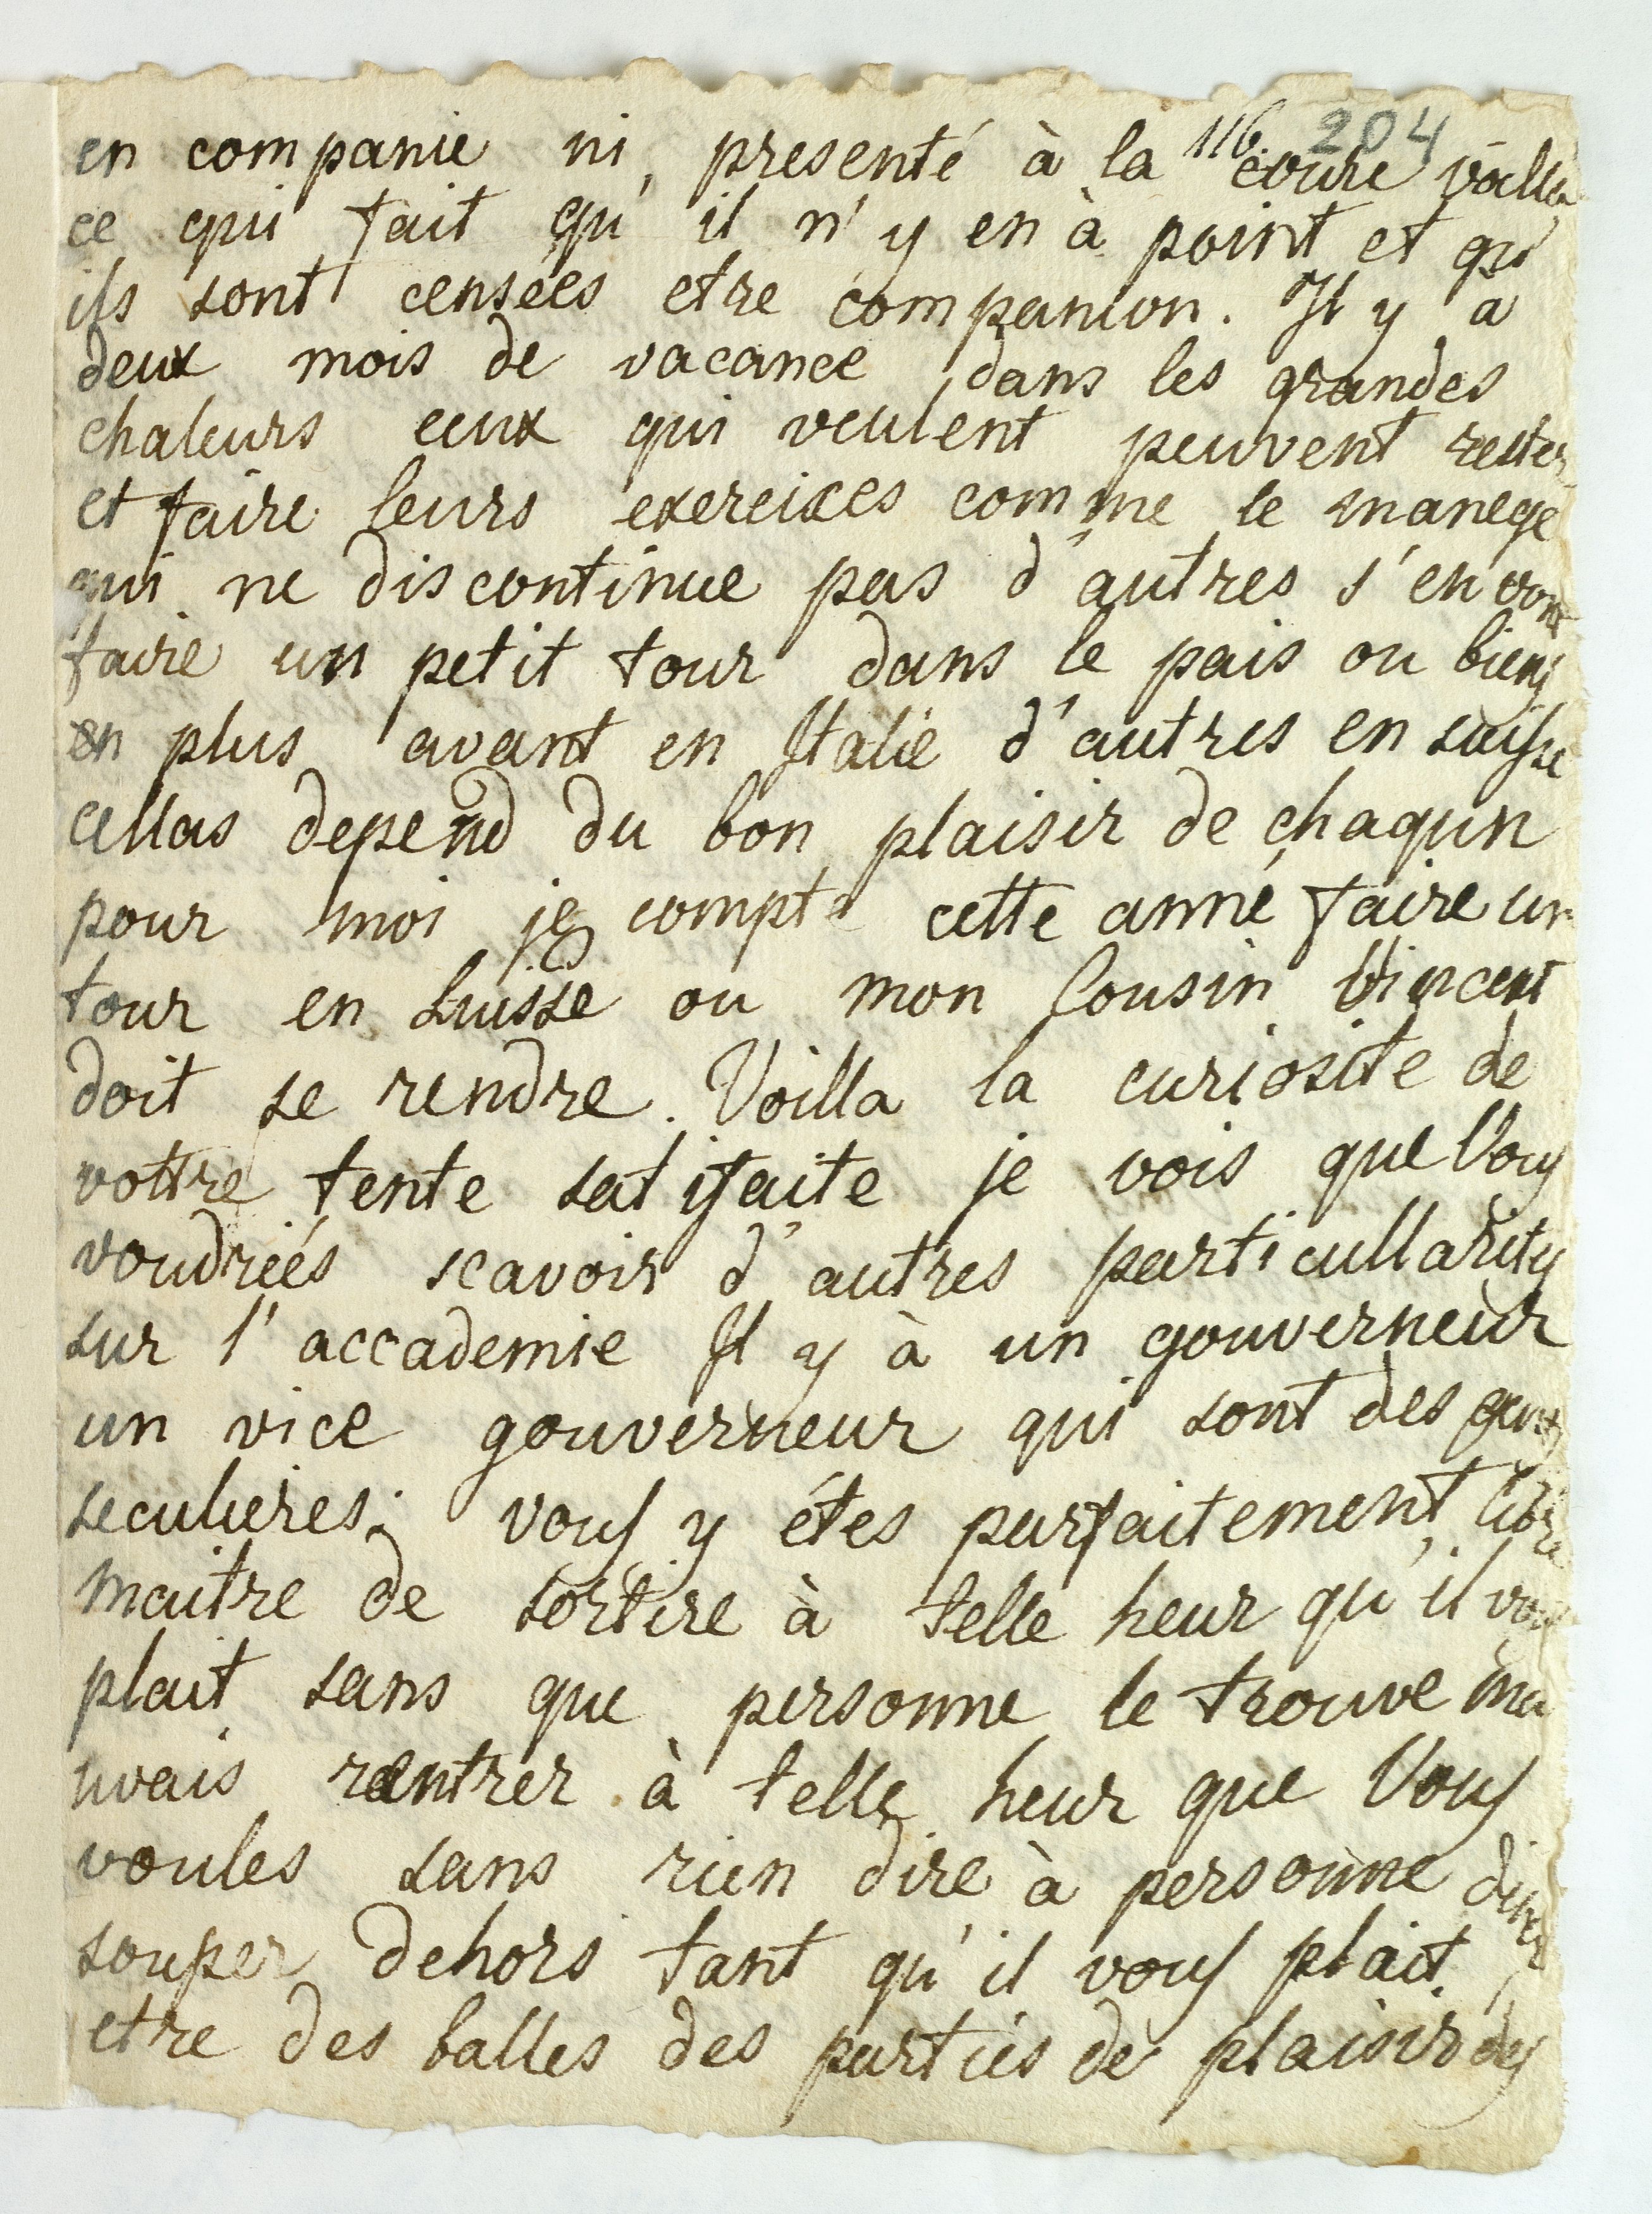 116. 204
en companie ni, presenté à la coure voilla
ce qui fait qu'il n'y en à point et qu'
ils sont censées etre companion. Il y a
deux mois de vacance dans les grandes
chaleurs ceux qui veulent peuvent rester
et faire leurs exercices comme le manege
qui ne discontinue pas d'autres s'en vont
faire un petit tour dans le pais ou biens
en plus avant en Italie d'autres en suisse
cellas depend du bon plaisir de chaqun
pour moi je compte cette anné faire un
tour en suisse ou mon Cousin Vincent
doit se rendre. Voilla la curiosite de
vottre tente satisfaite je vois que Vous
voudriés scavoir d'autres particullarités
sur l'accademie Il y à un gouverneur
un vice gouverneur qui sont des gens
seculieres. vous y étes parfaitement, libre
maitre de sortire à telle heur qu'il vous
plait sans que personne le trouve mau
uvais rentrer à telle heur que Vous
voules sans rien dire à personne diner
souper dehors tant qu'il vous plait,
etre des balles des parties de plaisir des